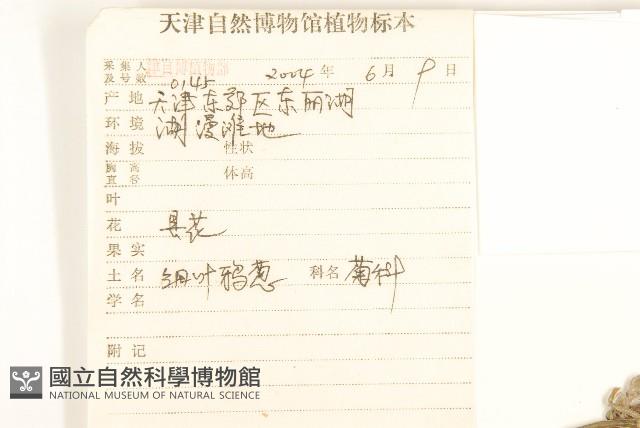 天津自然博物馆植物标本
采集人
及号数 0145 2004 年 6 月 9 日
产地 天津东郊区东丽湖
环境 湖漫滩地
海拔 性状
胸高
直径 体高
叶
花 具花
果实
土名 细叶鸦葱 科名 菊科
学名
附记
國立自然科學博物館
NATIONAL MUSEUM OF NATURAL SCIENCE